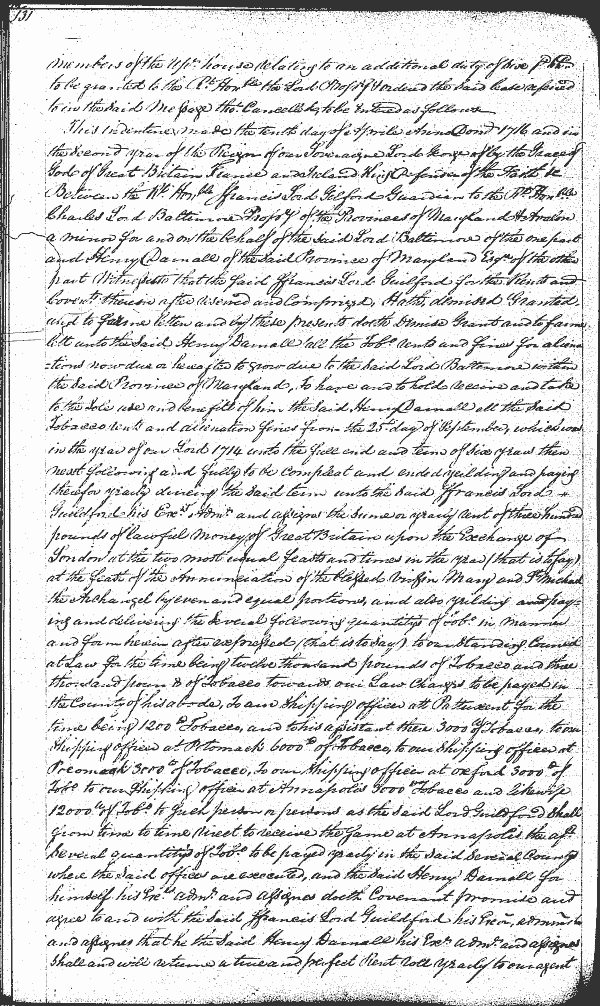 131
members of the upr. house relating to an additional duty of six
to be granted to the Rt. Honble the Lord Propry ordered the said lease referred
to in the said Message tho. Cancelled, to be entred as follows
This Indenture made the tenth day of Aprile Anno Domi 1716 and in
the second year of the Reign of our Sovereigne Lord George of by the Grace of
God of Great Britain France and Ireland King Defender of the Faith &c
Between the Rt. Honble ffrancis Lord Gilford Guardian to the Rt. Honble
Charles Lord Baltimore Propry of the Provinces of Maryland & Avalon
a minor for and on the behalf of the said Lord Baltimore of the one part
and Henry Darnall of the said Province of Maryland Esqr. of the other
part Witnesseth that the said ffrancis Lord Guilford for the Rents and
Covents therein after reserved and Comprized, Hath demised Granted
and to farme letten and by these presents doth Demise Grant and to farme
lett unto the said Henry Darnall all the Tobo. rents and fines for aliena
-tions now due or hereafter to grow due to the said Lord Baltimore within
the said Province of Maryland, To have and to hold receive and take
to the sole use and benefit of him the said Henry Darnall all the said
Tobacco rents and alienation fines from the 25th day of September, which was
in the year of our Lord 1714 unto the full end and term of six years then
next following and fully to be compleat and ended yeilding and paying
therefor yearly during the said term unto the said ffrancis Lord
Guildford his Exrs. Admrs. and assignes the sume or yearly rent of three hundred
pounds of lawful Money of Great Britain upon the Exchange of
London at the two most usual feasts and times in the year (that is to say)
at the feast of the Annunciation of the blessed Virgin Mary and St. Michael
the Archangel by even and equal portions, and also yeilding and pay-
ing and delivering the several following quantitys of Tobo. in manner
and form herein after expressed (that is to say) to our Standing Councel
at Law for the time being twelve thousand pounds of Tobacco and three
thousand pounds of Tobacco towards our Law Charges to be payed in
the County of his abode, To our Shipping officer att Pattuxent for the
time being 1200 Tobacco, and to his assistant there 3000 of Tobacco, to our
Shipping officer at Potomack 6000 of Tobacco, to our Shipping officer at
Pocomack 3000 of Tobacco, To our Shipping officer at oxford 3000 of
Tobo. to our Shipping officer at Annapolis 3000 Tobacco and likewise
12000 of Tobo. to such person or persons as the said Lord Guildford shall
from time to time direct to receive the same at Annapolis the afd.
several quantitys of Tobo. to be payed yearly in the said several Countys
where the said offices are executed, and the said Henry Darnall for
himself his Exrs. admrs. and assignes doth Covenant promise and
agree to and with the said ffrancis Lord Guildford his Exrs.
and assignes that he the said Henry Darnall his Exrs. admrs. and assignes
shall and will return a true and perfect Rent roll yearly to our agent